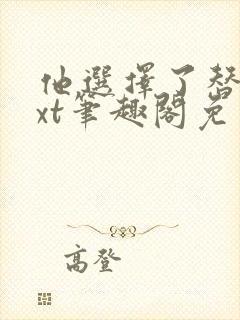 他選擇了替
xt筆趣閣免
高登